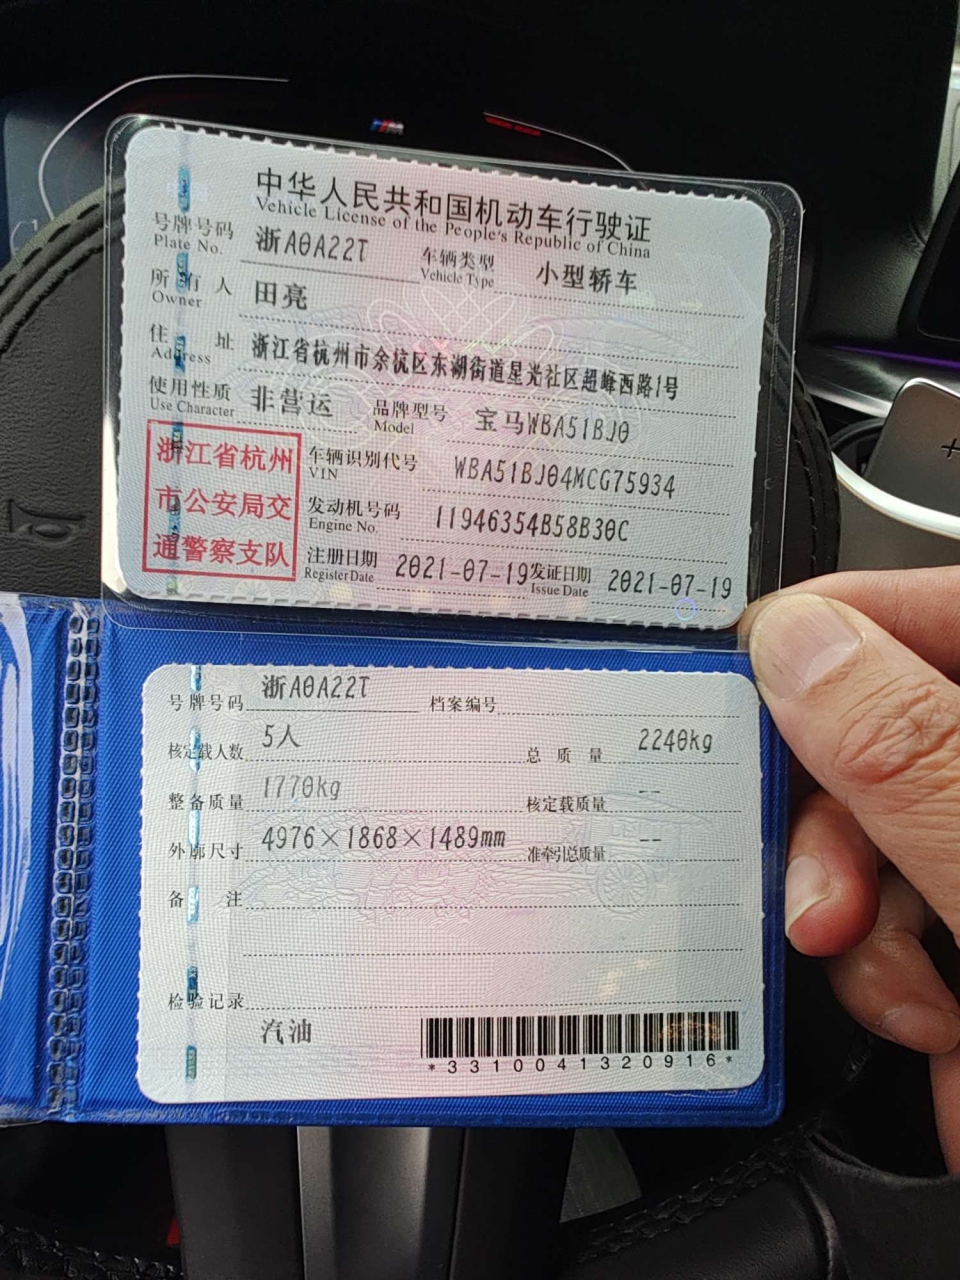 中华人民共和国机动车行驶证
Vehicle License of the People's Republic of China
号牌号码 浙A0A22T 车辆类型 小型轿车
Plate No. Vehicle Type
所有人 田亮
Owner
住址 浙江省杭州市余杭区东湖街道星光社区超峰西路1号
Address
使用性质 非营运 品牌型号 宝马WBA51BJ0
Use Character Model
浙江省杭州
市公安局交
通警察支队
车辆识别代号 WBA51BJ04MCG75934
VIN
发动机号码 11946354B58B30C
Engine No.
注册日期 2021-07-19 发证日期 2021-07-19
Register Date Issue Date
号牌号码 浙A0A22T 档案编号
核定载人数 5人 总质量 2240kg
整备质量 1770kg 核定载质量 --
外廓尺寸 4976×1868×1489mm 准牵引总质量 --
备注
检验记录
汽油
*3310041320916*